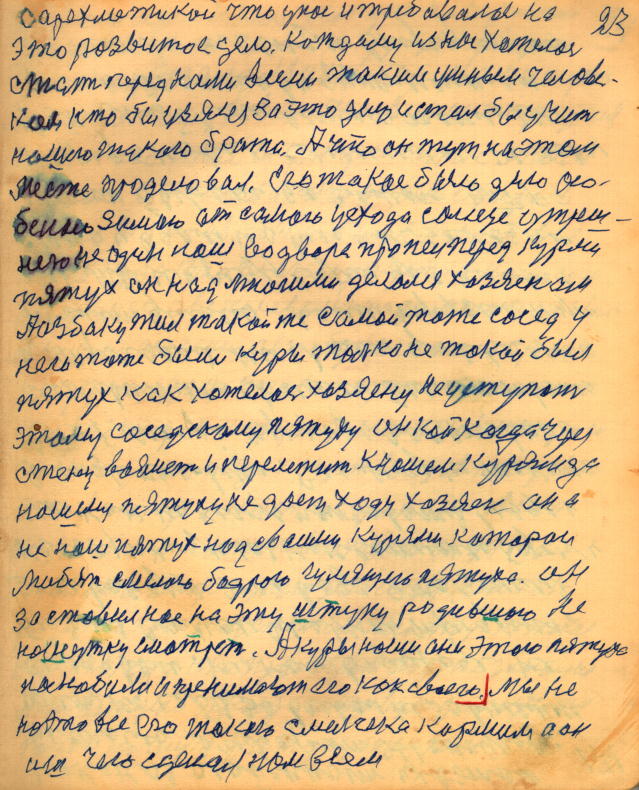 23
это развитое дело. Каждому из нас хотелося
стать перед нами всеми таким умным челове-
ком кто бы взялся за это дело и стал бы учит
нашего такого брата. А что он тут на этом
месте проделовал. Его такое было дело осо-
бенно зимою от самого
нею не один наш со двора пропел перед курми
пятух он над многими делом хозяен
А
него тоже были куры только не такой был
пятух как хотелося хозяену не уступают
этому соседскому пятуху он кой когда чрез
стену возмет и перелетит к нашем курям да
нашему пятуху не дает ходу хозяен он а
не наш пятух над своими курями которои
любят смелого бодрого гулящего пятуха. он
заставил нас на эту штуку родившого не
на шутку смотрет. А куры наши они этого пятуха
полюбили и пренимают его как своего. Мы не
на то все его такого смелчака кормим а он
ит чего сделал нам всем